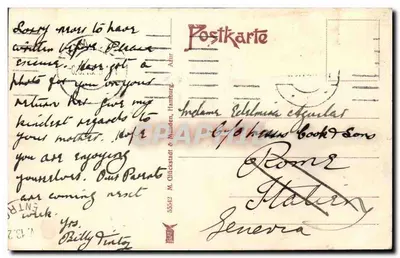 Sorry not to have
written before. Please
excuse. Have got a
photo for you on your
return. Best give my
kindest regards to
your mother. Hope
you are enjoying
yourselves. Our Parents
are coming next
week.
Yrs.
Billy
Postkarte
Madame Edelmira Aguilar
c/o Messrs Cook & Sons
Rome
Italien
Genevra
55547 M. Glückstadt & Münden, Hamburg.
CPAPHIL